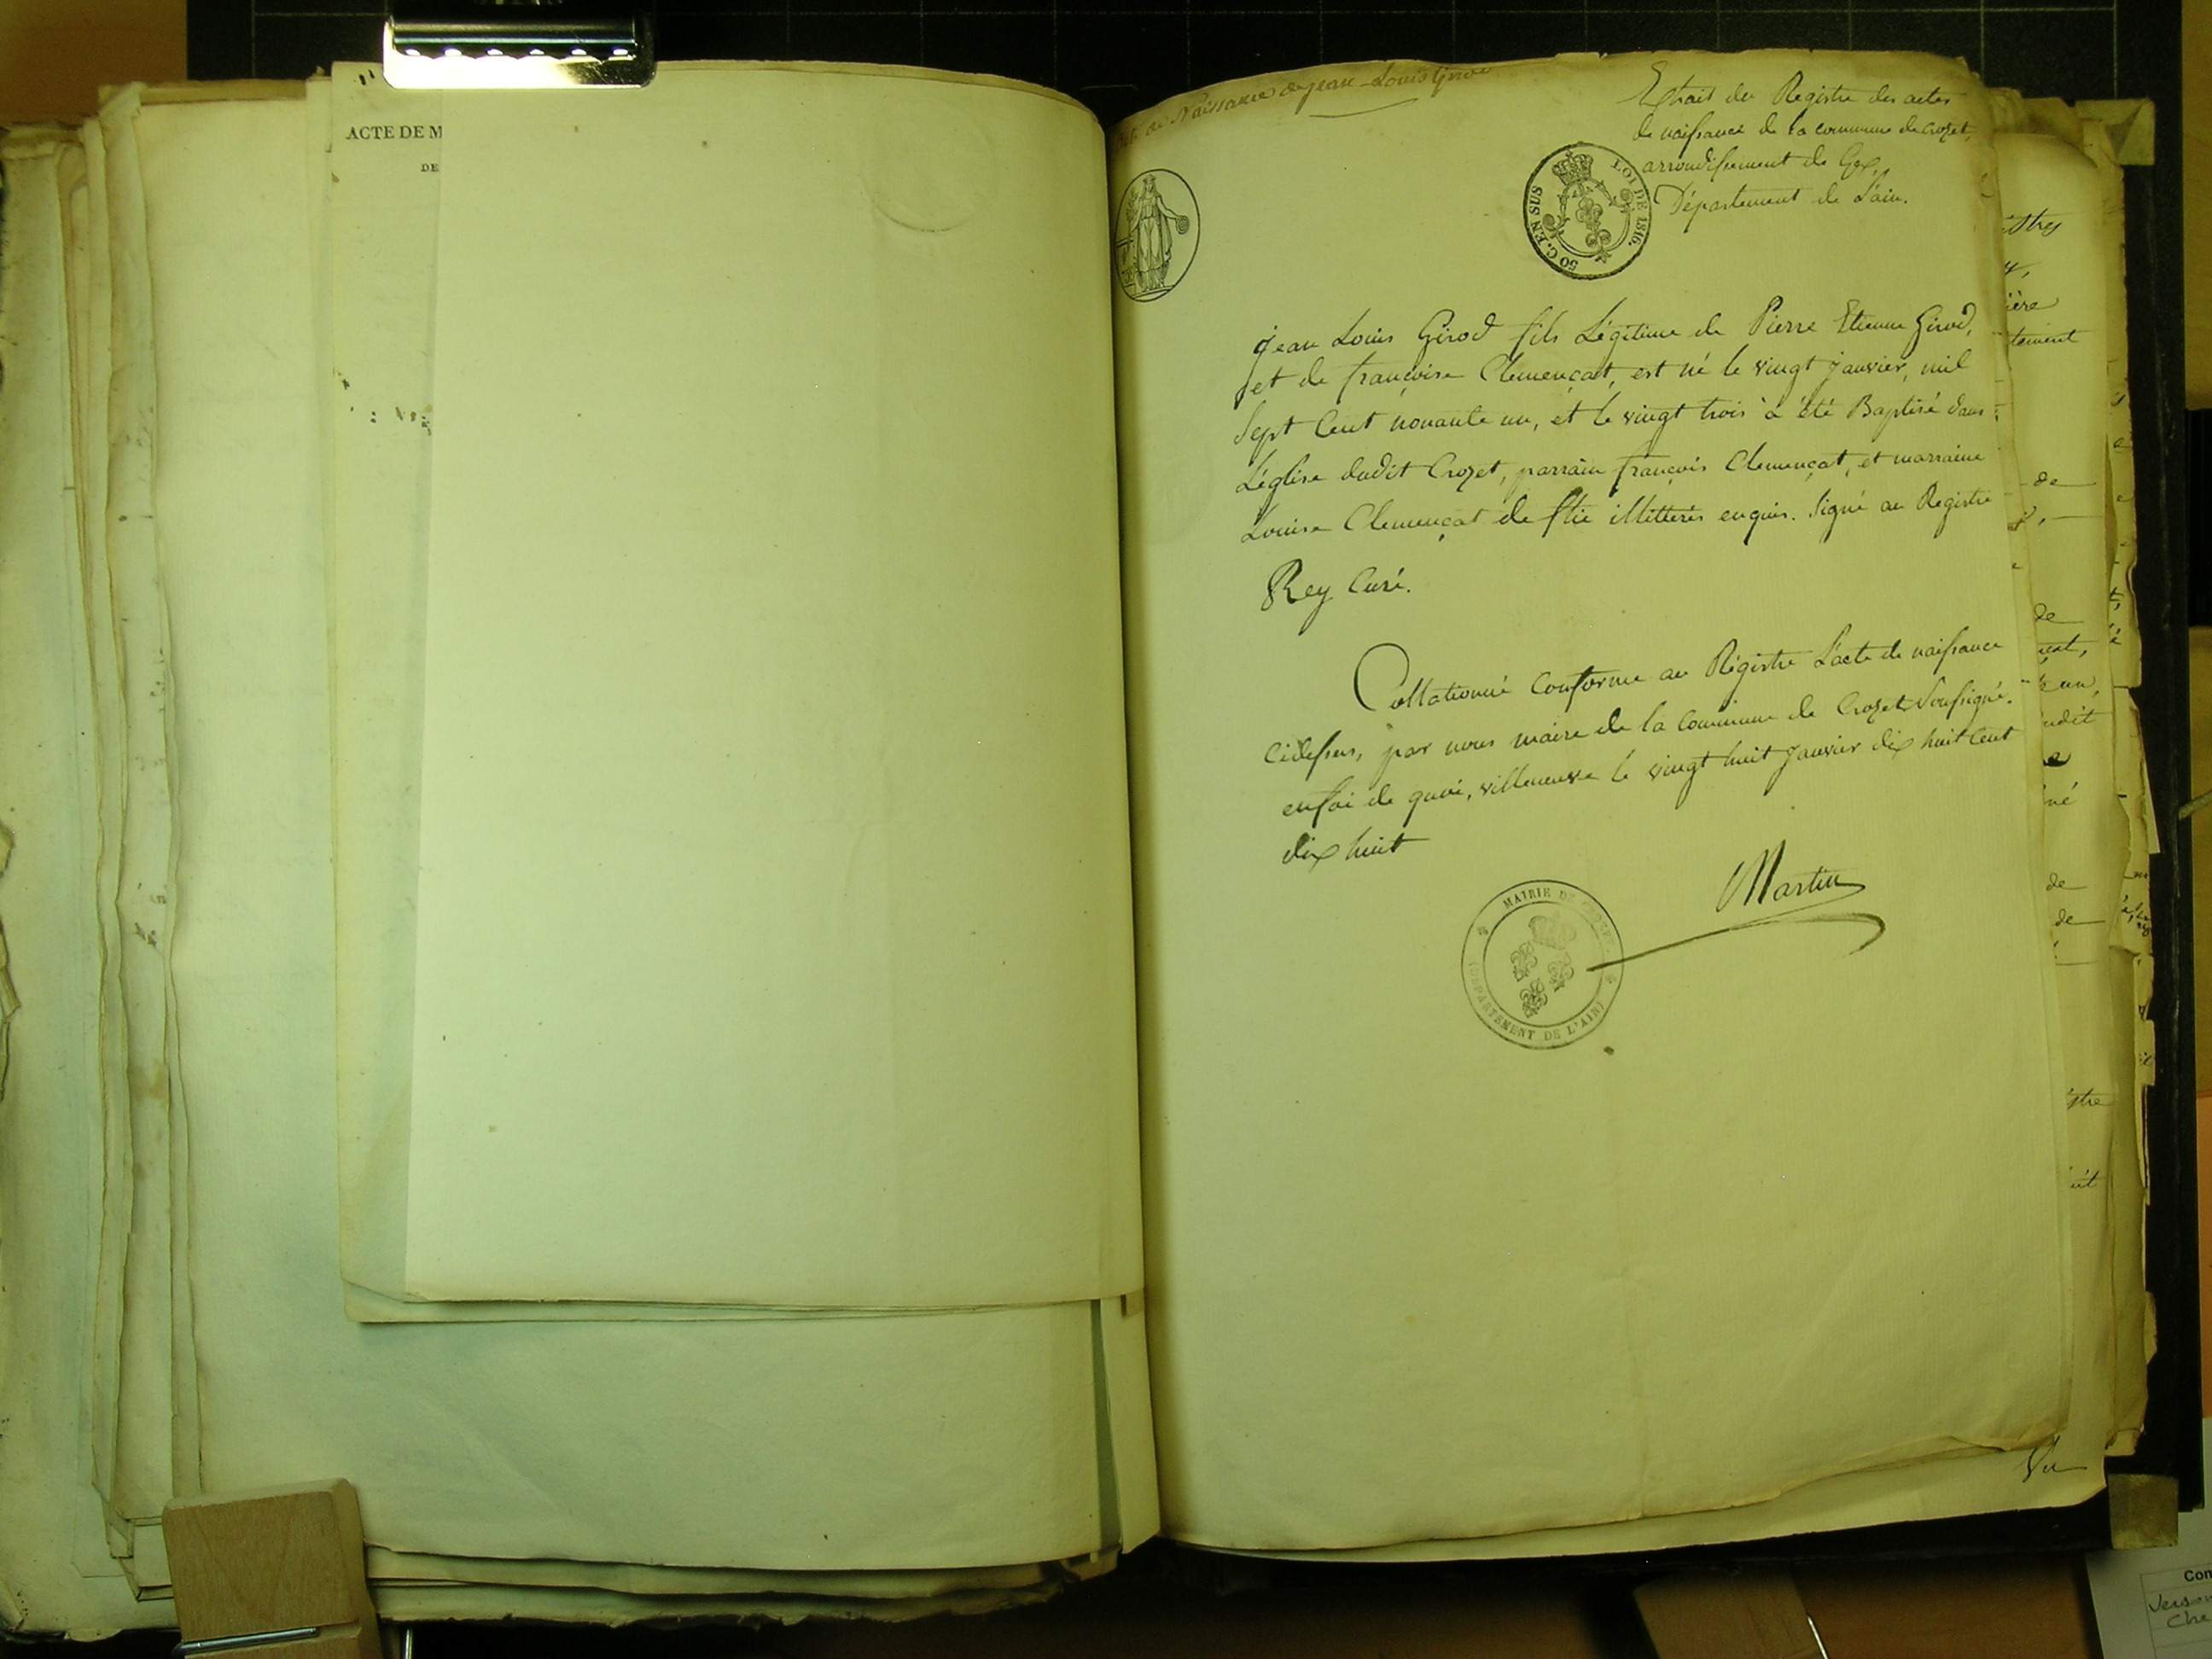 ACTE DE M
DE
Naissance de jean-Louis Girod
Extrait du Registre des actes
de naissance de la commune de Crozet,
arrondissement de Gex,
Département de L'ain.
LOI DE 1816.
50 C. EN SUS
jean Louis Girod fils Légitime de Pierre Etienne Girod,
et de françoise Clemençat, est né le vingt janvier, mil
Sept Cent nonante un, et le vingt trois à été Baptisé dans
L'église dudit Crozet, parrain françois Clemençat, et marraine
Louise Clemençat de illitterés enquis. Signé au Registre
Rey Curé.
Collationné Conforme au Régistre L'acte de naissance
Cidessus, par nous maire de la Commune de Crozet Soussigné.
enfoi de quoi, villeneuve le vingt huit janvier dix huit Cent
dix huit
Martin
MAIRIE DE CROZET
(DÉPARTEMENT DE L'AIN)
ière
tement
de
de
un,
udit
né
de
de
Vu
Con